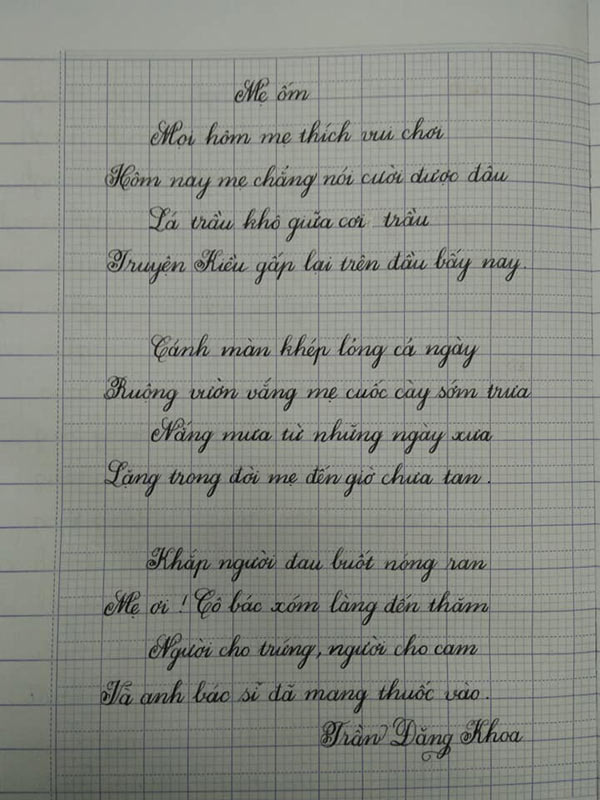 Mẹ ốm
Mọi hôm mẹ thích vui chơi
Hôm nay mẹ chẳng nói cười được đâu
Lá trầu khô giữa cơi trầu
Truyện Kiều gấp lại trên đầu bấy nay.
Cánh màn khép lỏng cả ngày
Ruộng vườn vắng mẹ cuốc cày sớm trưa
Nắng mưa từ những ngày xưa
Lặng trong đời mẹ đến giờ chưa tan.
Khắp người đau buốt nóng ran
Mẹ ơi! Cô bác xóm làng đến thăm
Người cho trứng, người cho cam
Và anh bác sĩ đã mang thuốc vào.
Trần Đăng Khoa